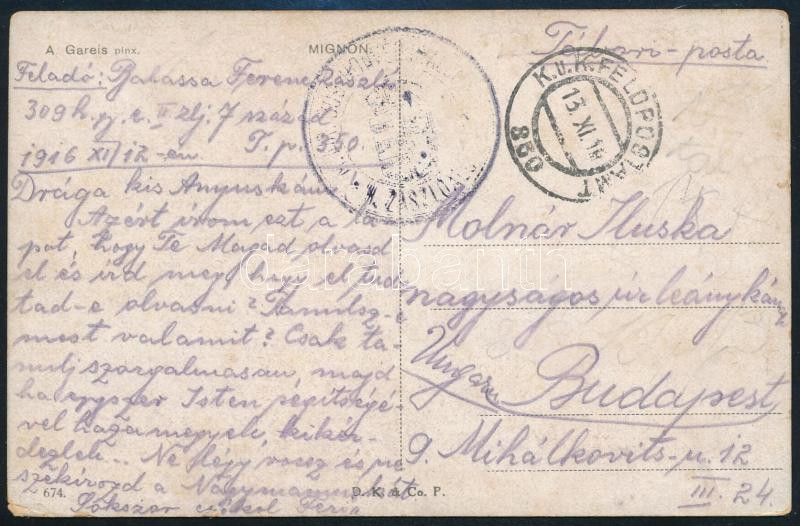 A Gareis pinx. MIGNON.
Feladó: Balassa Ferenc zászlós
309 h. gy. e. II zlj. 7 század
1916 XI/12-én T. p. 350.
Drága kis Anyuskám!
Azért írom ezt a la-
pot, hogy Te Magad olvasd
el és írd meg, hogy el tud-
tad-e olvasni? Tanulsz-e
most valamit? Csak ta-
nulj szorgalmasan, majd
ha egyszer Isten segítségé-
vel haza megyek, kikér-
dezlek... Ne légy rossz és ne
szekírozd a Nagymamánkat.
Sokszor csókol Feri
674. D. K. & Co. P.
Tábori-posta
K.u.K. FELDPOSTAMT
13. XI. 16
350
Molnár Iluska
nagyságos úrleánykának
Ungarn
Budapest
9. Mihálkovits-u. 12
III. 24.
darabanth